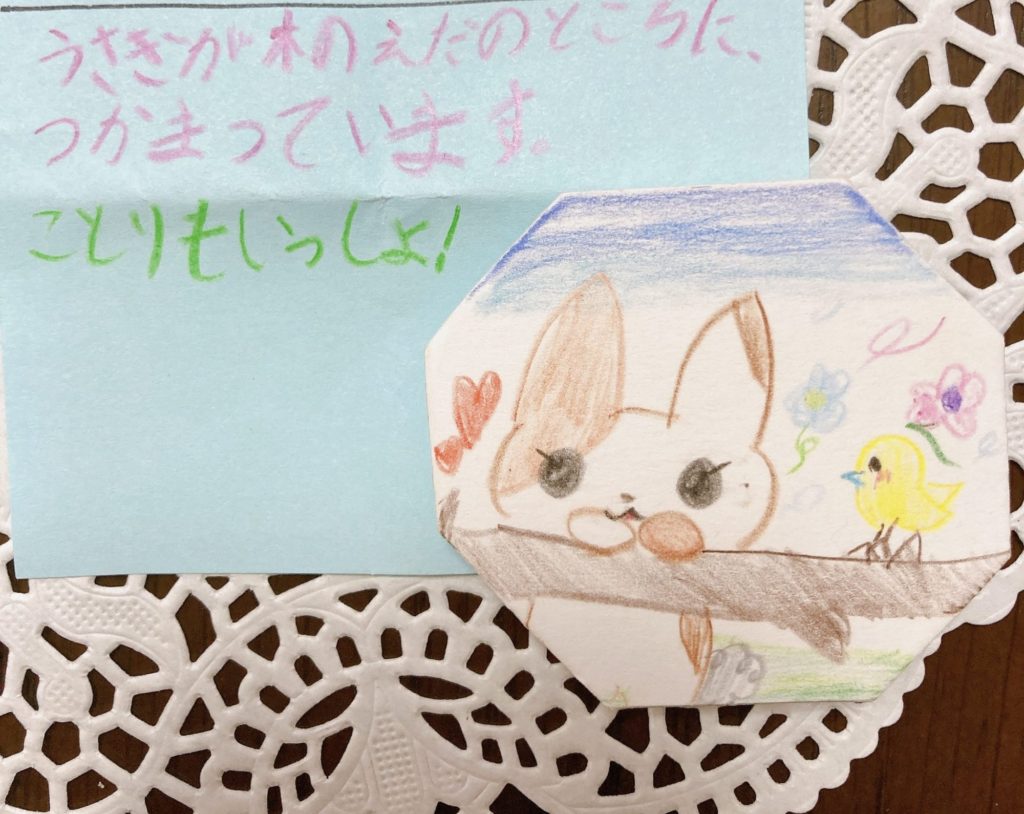 うさぎが木のえだのところに、
つかまっています。
ことりもいっしょ!